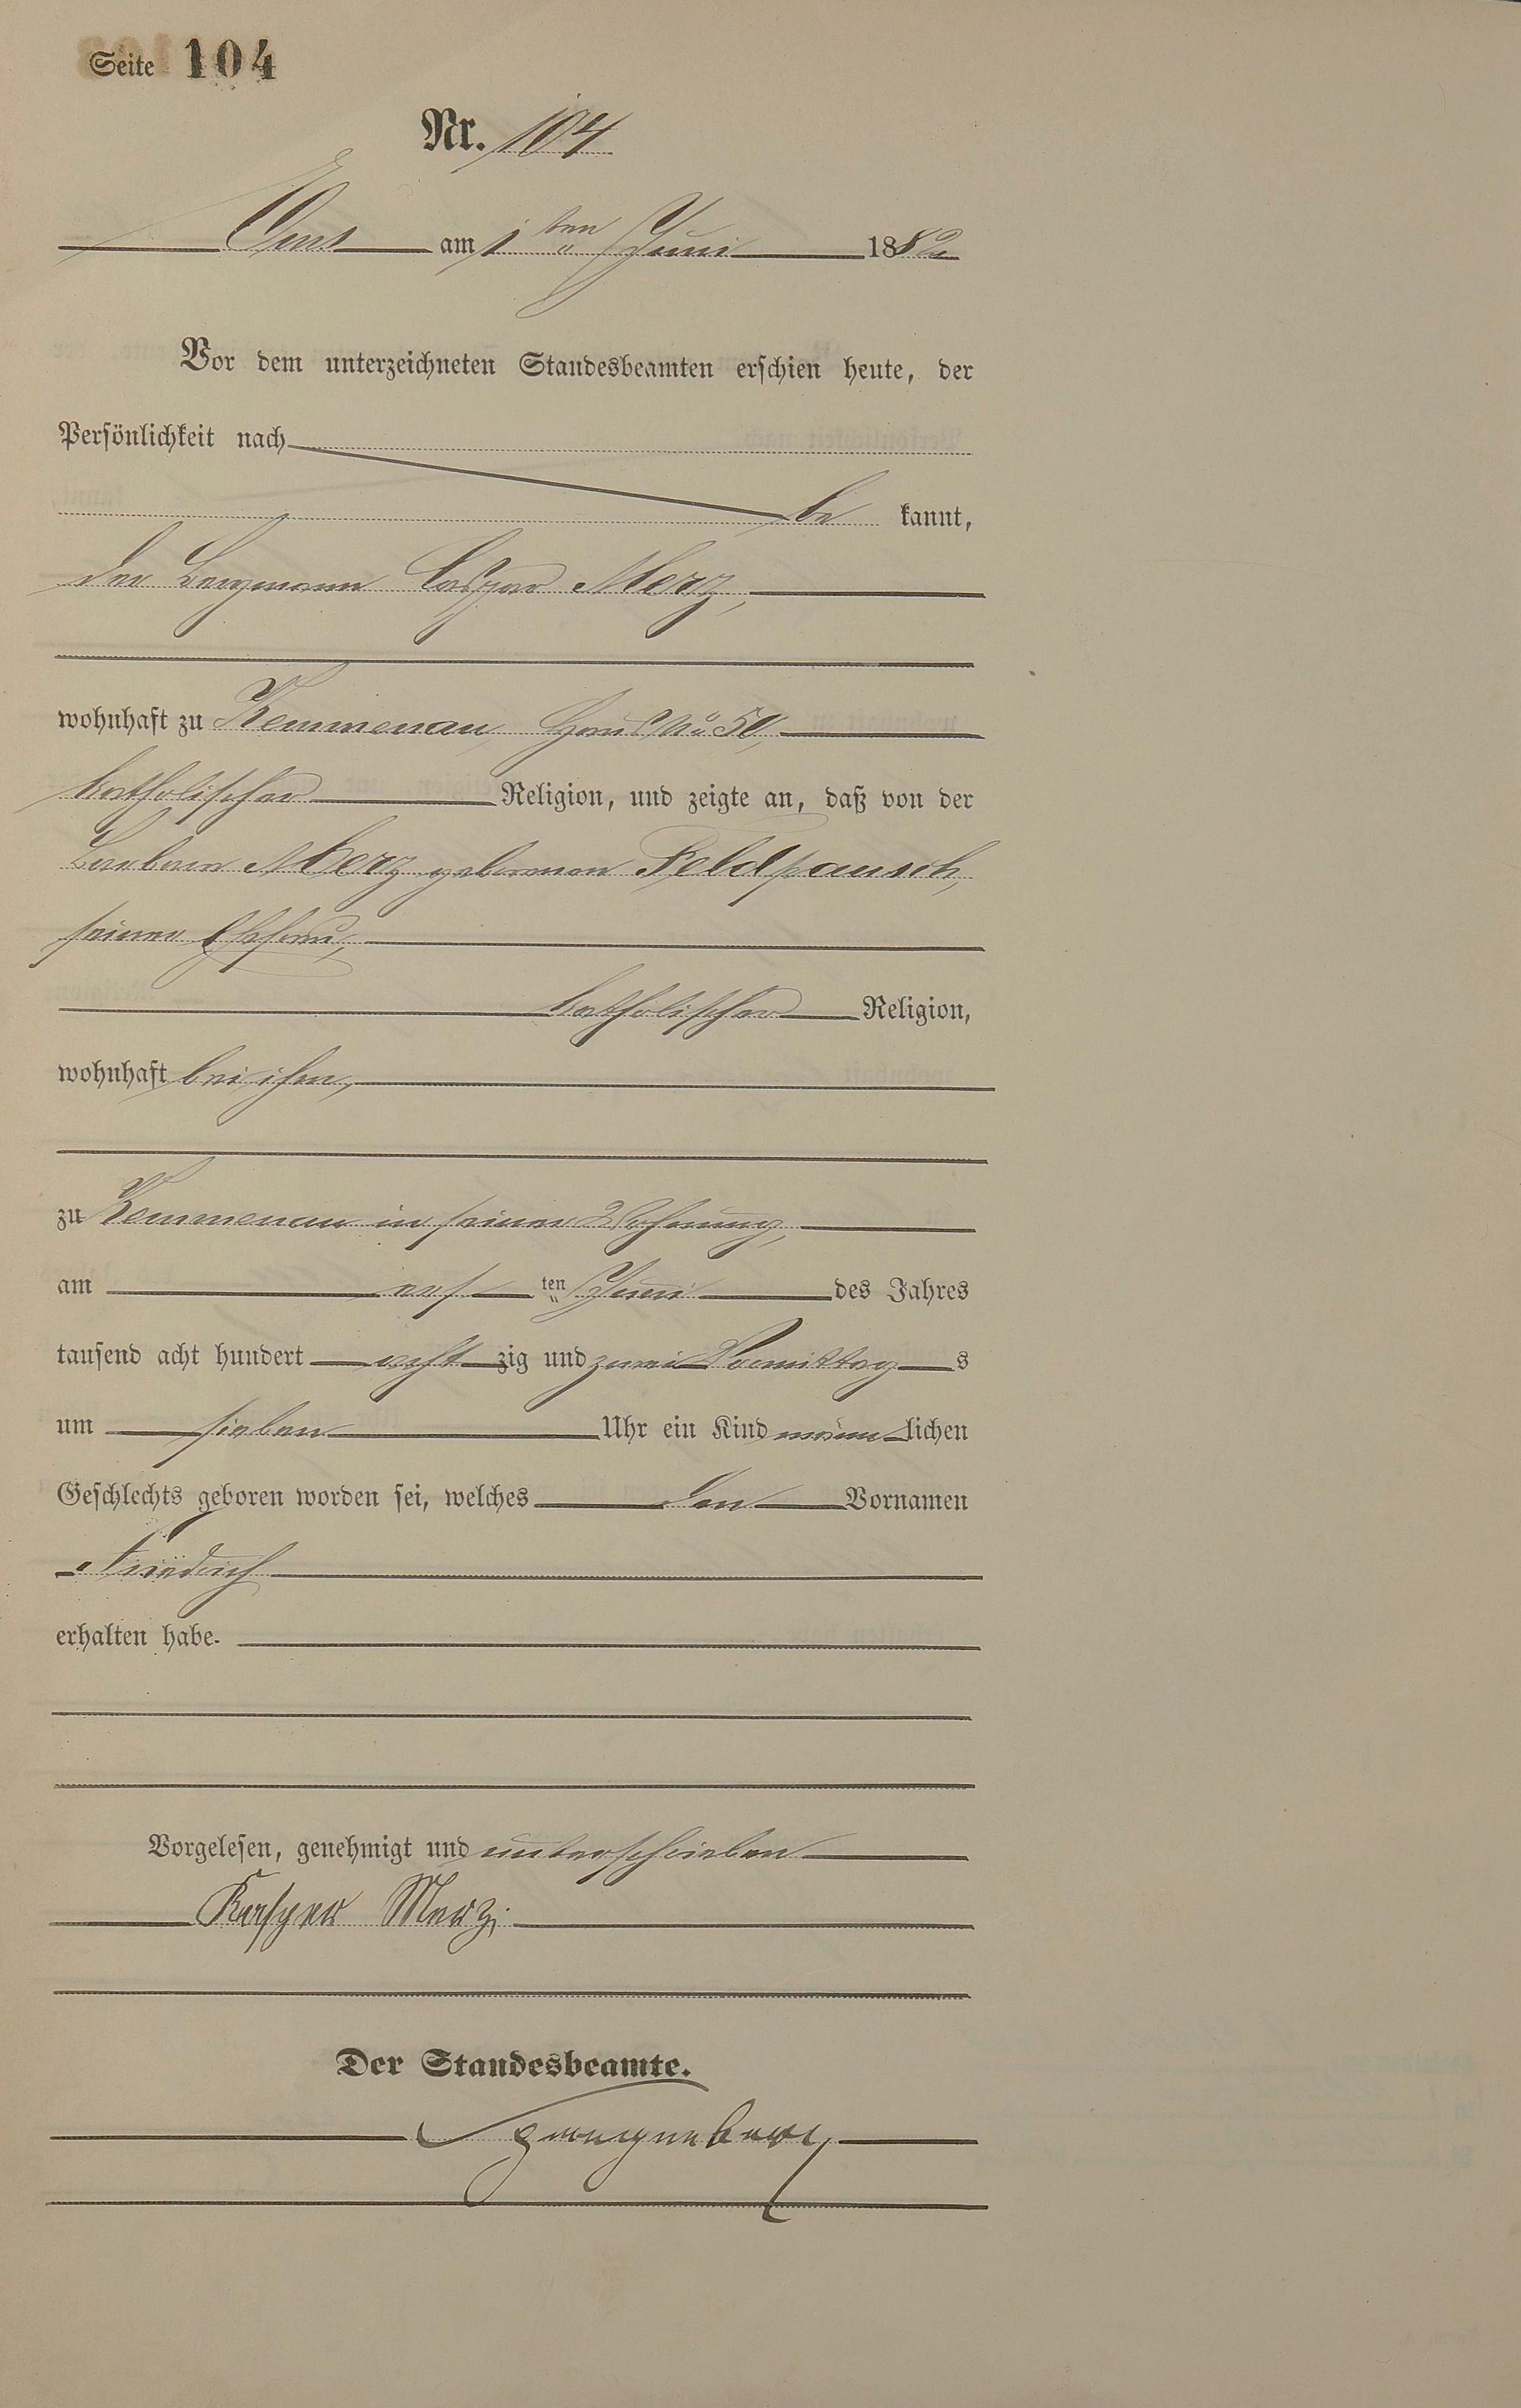 Seite 104
Nr. 104
Ems am 1 ten Juni 1882
Vor dem unterzeichneten Standesbeamten erschien heute, der
Persönlichkeit nach
be kannt,
der Bergmann Caspar Merz,
wohnhaft zu Kemmenau, Haus No 50,
katholischer Religion, und zeigte an, daß von der
Barbara Merz geborenen Feldpausch,
seiner Ehefrau,
katholischer Religion,
wohnhaft bei ihm,
zu Kemmenau in seiner Wohnung,
am ersten Juni des Jahres
tausend acht hundert acht zig und zwei Vormittag s
um sieben Uhr ein Kind männ lichen
Geschlechts geboren worden sei, welches den Vornamen
Friedrich
erhalten habe.
Vorgelesen, genehmigt und unterschrieben
Kasper Merz.
Der Standesbeamte.